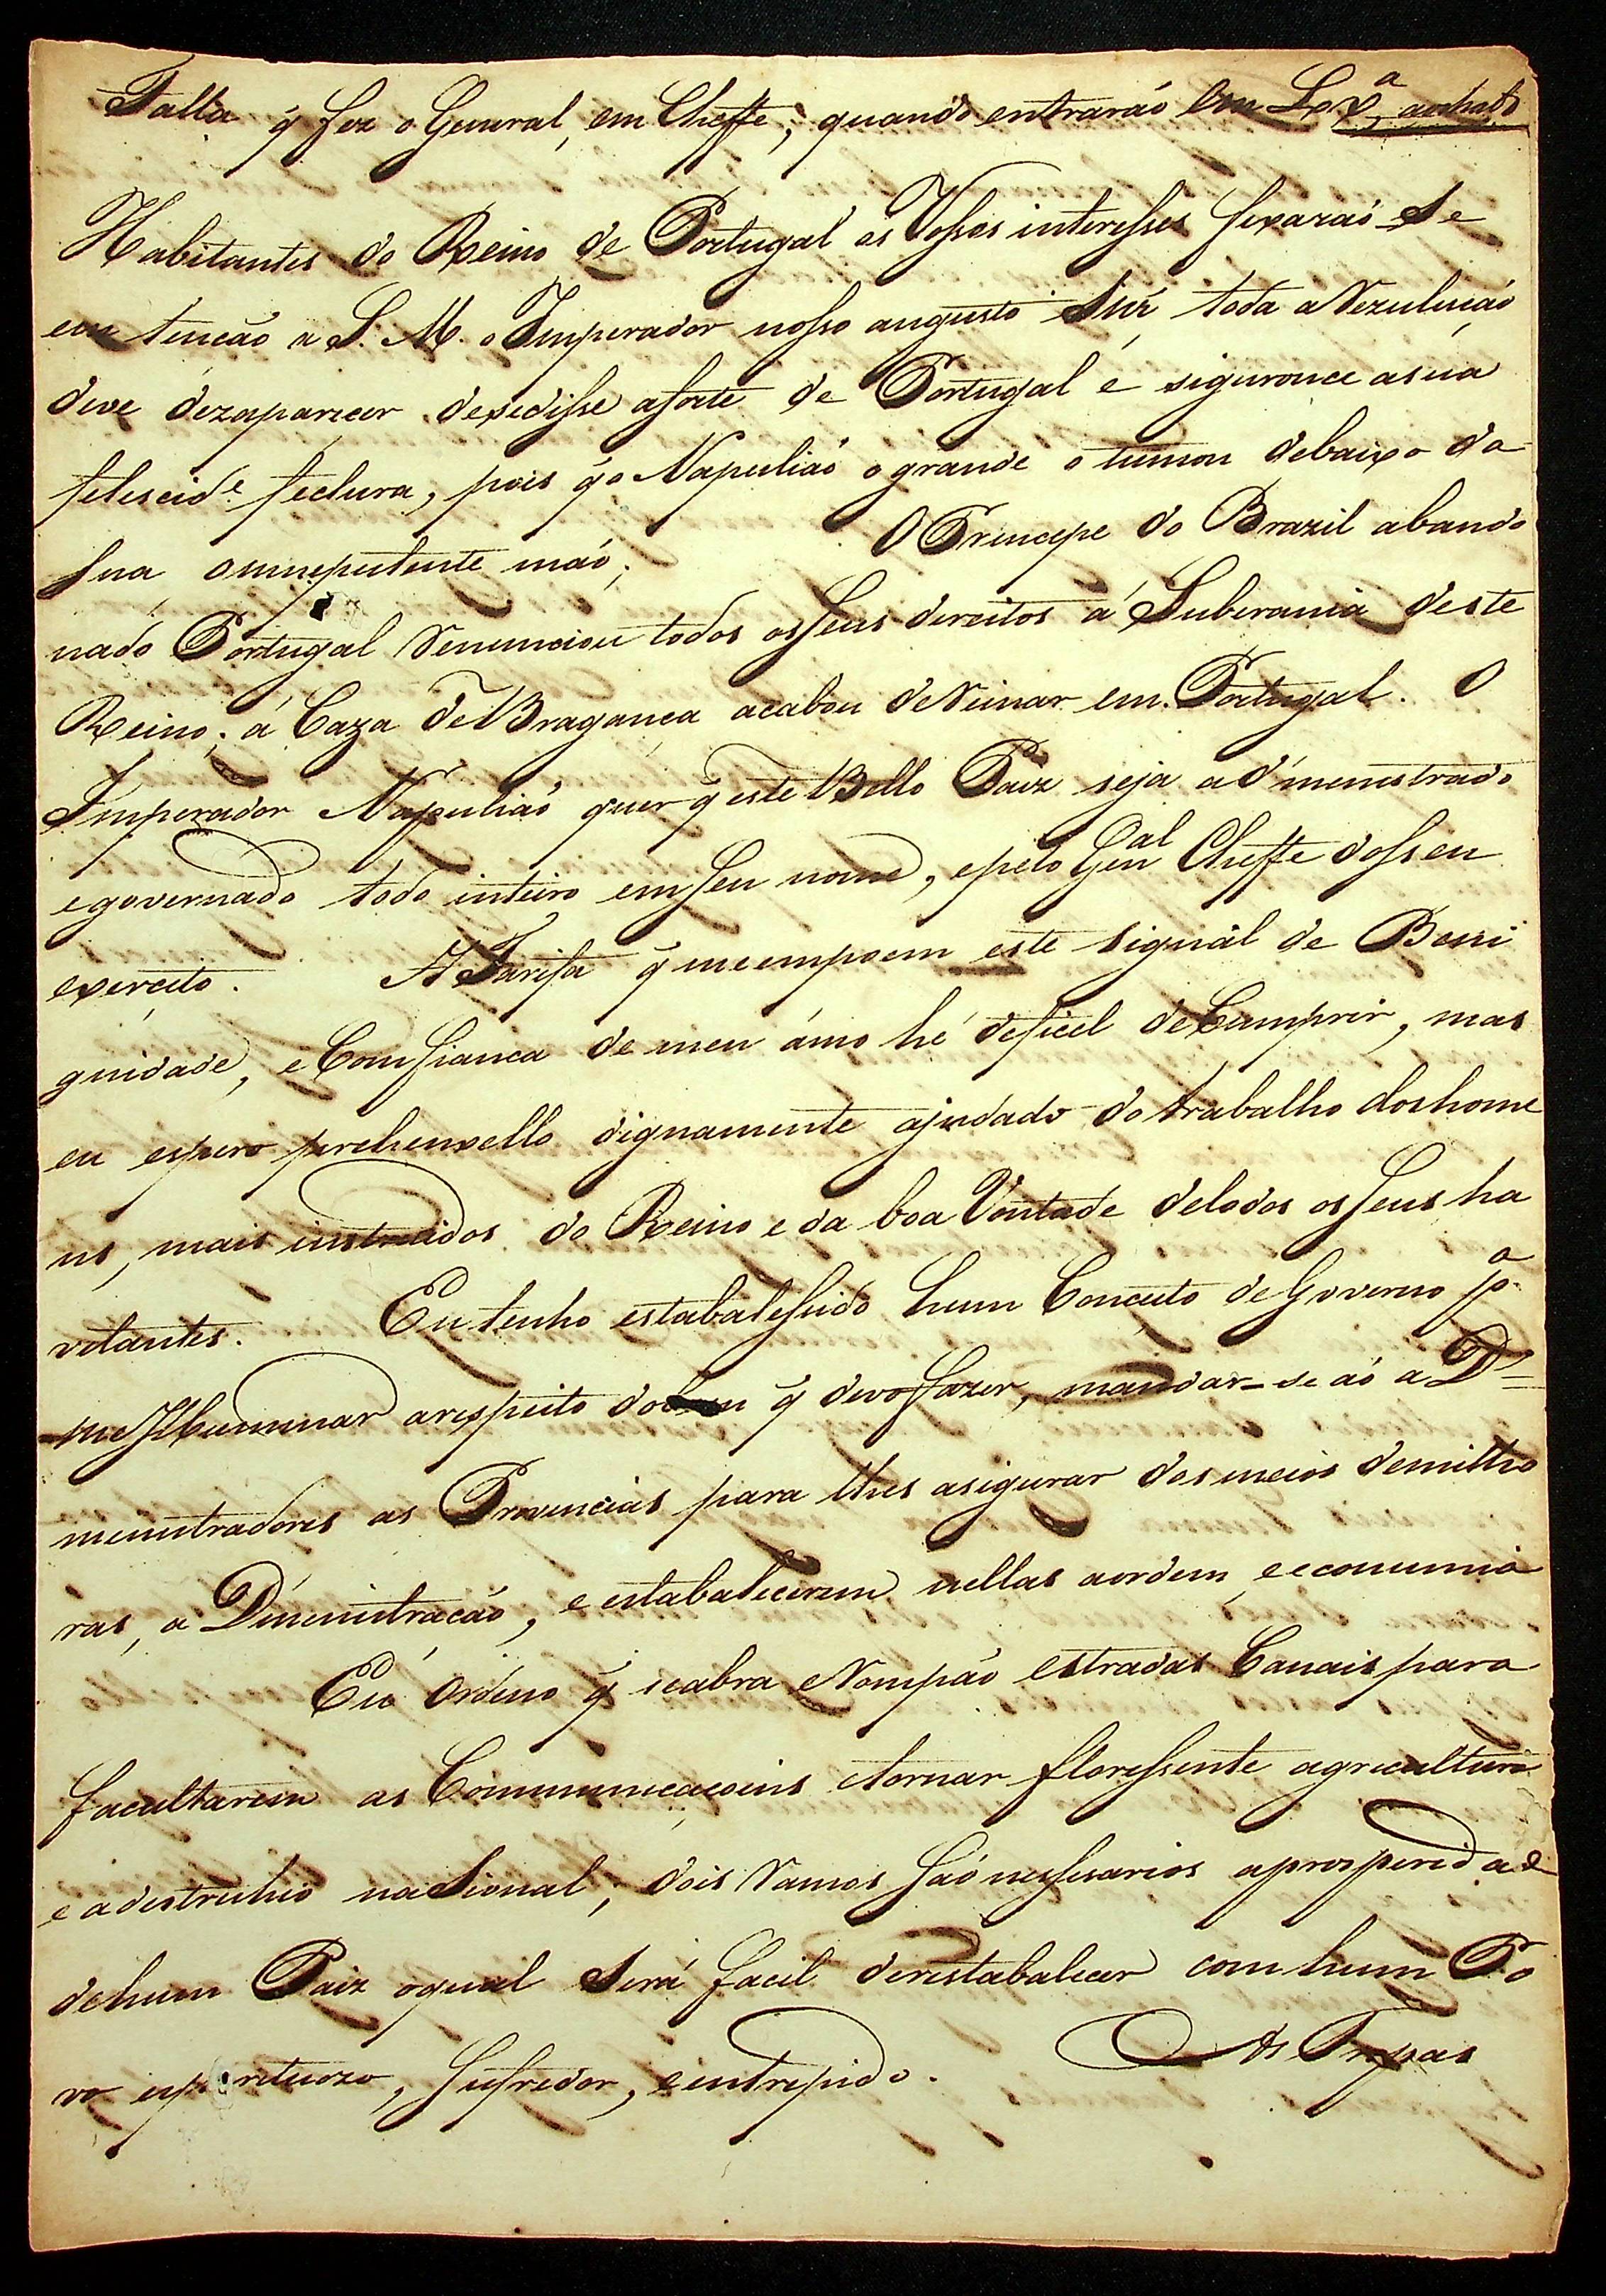 Falla q̃ fez o General, em Cheffe, quando entraraó em Lxª
Habitantes do Reino de Portugal os Vossos interesses fixaraó Se
em tencaó a S. M. o Imperador nosso augusto Snr̃ toda a Rezulucaó
deve dezaparecer desedisse a Sorte de Portugal e sigurouce a sua
felescidᵉ fuctura, pois q̃ o Napuliaó o grande o tumou debaixo da
Sua omneputente maó. O Princepe do Brazil abando
nado Portugal Renunciou todos os Seus dereitos á Suberania deste
Reino; á Caza de Bragança acabou de Reinar em Portugal. O
Imperador Napuliaó quer q̃ este Bello Paiz seja ad'menestrado
e governado todo inteiro em Seu nome, e pelo Genᵃˡ Cheffe do Seu
exercito. A Tarifa q̃ me empoem este Signal de Beni
gnidade, e Comfianca de meu ámo hé deficel de Cumprir, mas
eu espero prehenxello dignamente ajudado do trabalho dos home
ns, mais instruidos do Reino e da boa Vontade de todos os Seus ha
vitantes. Eu tenho estabalessido hum Conceito de Governo pª
me Illumunar a respeito do bem q̃ devo fazer, mandar-se áó a D'=
menistradores as Provencias para lhes asigurar dos meios de milho
ras, a D'menistracaó, e estabalecerem nellas a ordem e econumia
Eu Ordeno q̃ se abra e Rompaó estradas Canais para
facultarem as Communicacoins e tornar floressente agricultura
e a destruhio naSional, dois Ramos Saó nessesarios a prosperidade
de hum Paiz o qual Será facil de restabalecer com hum Po
vo esperituozo, Sufredor, e intrepido. As Tropas